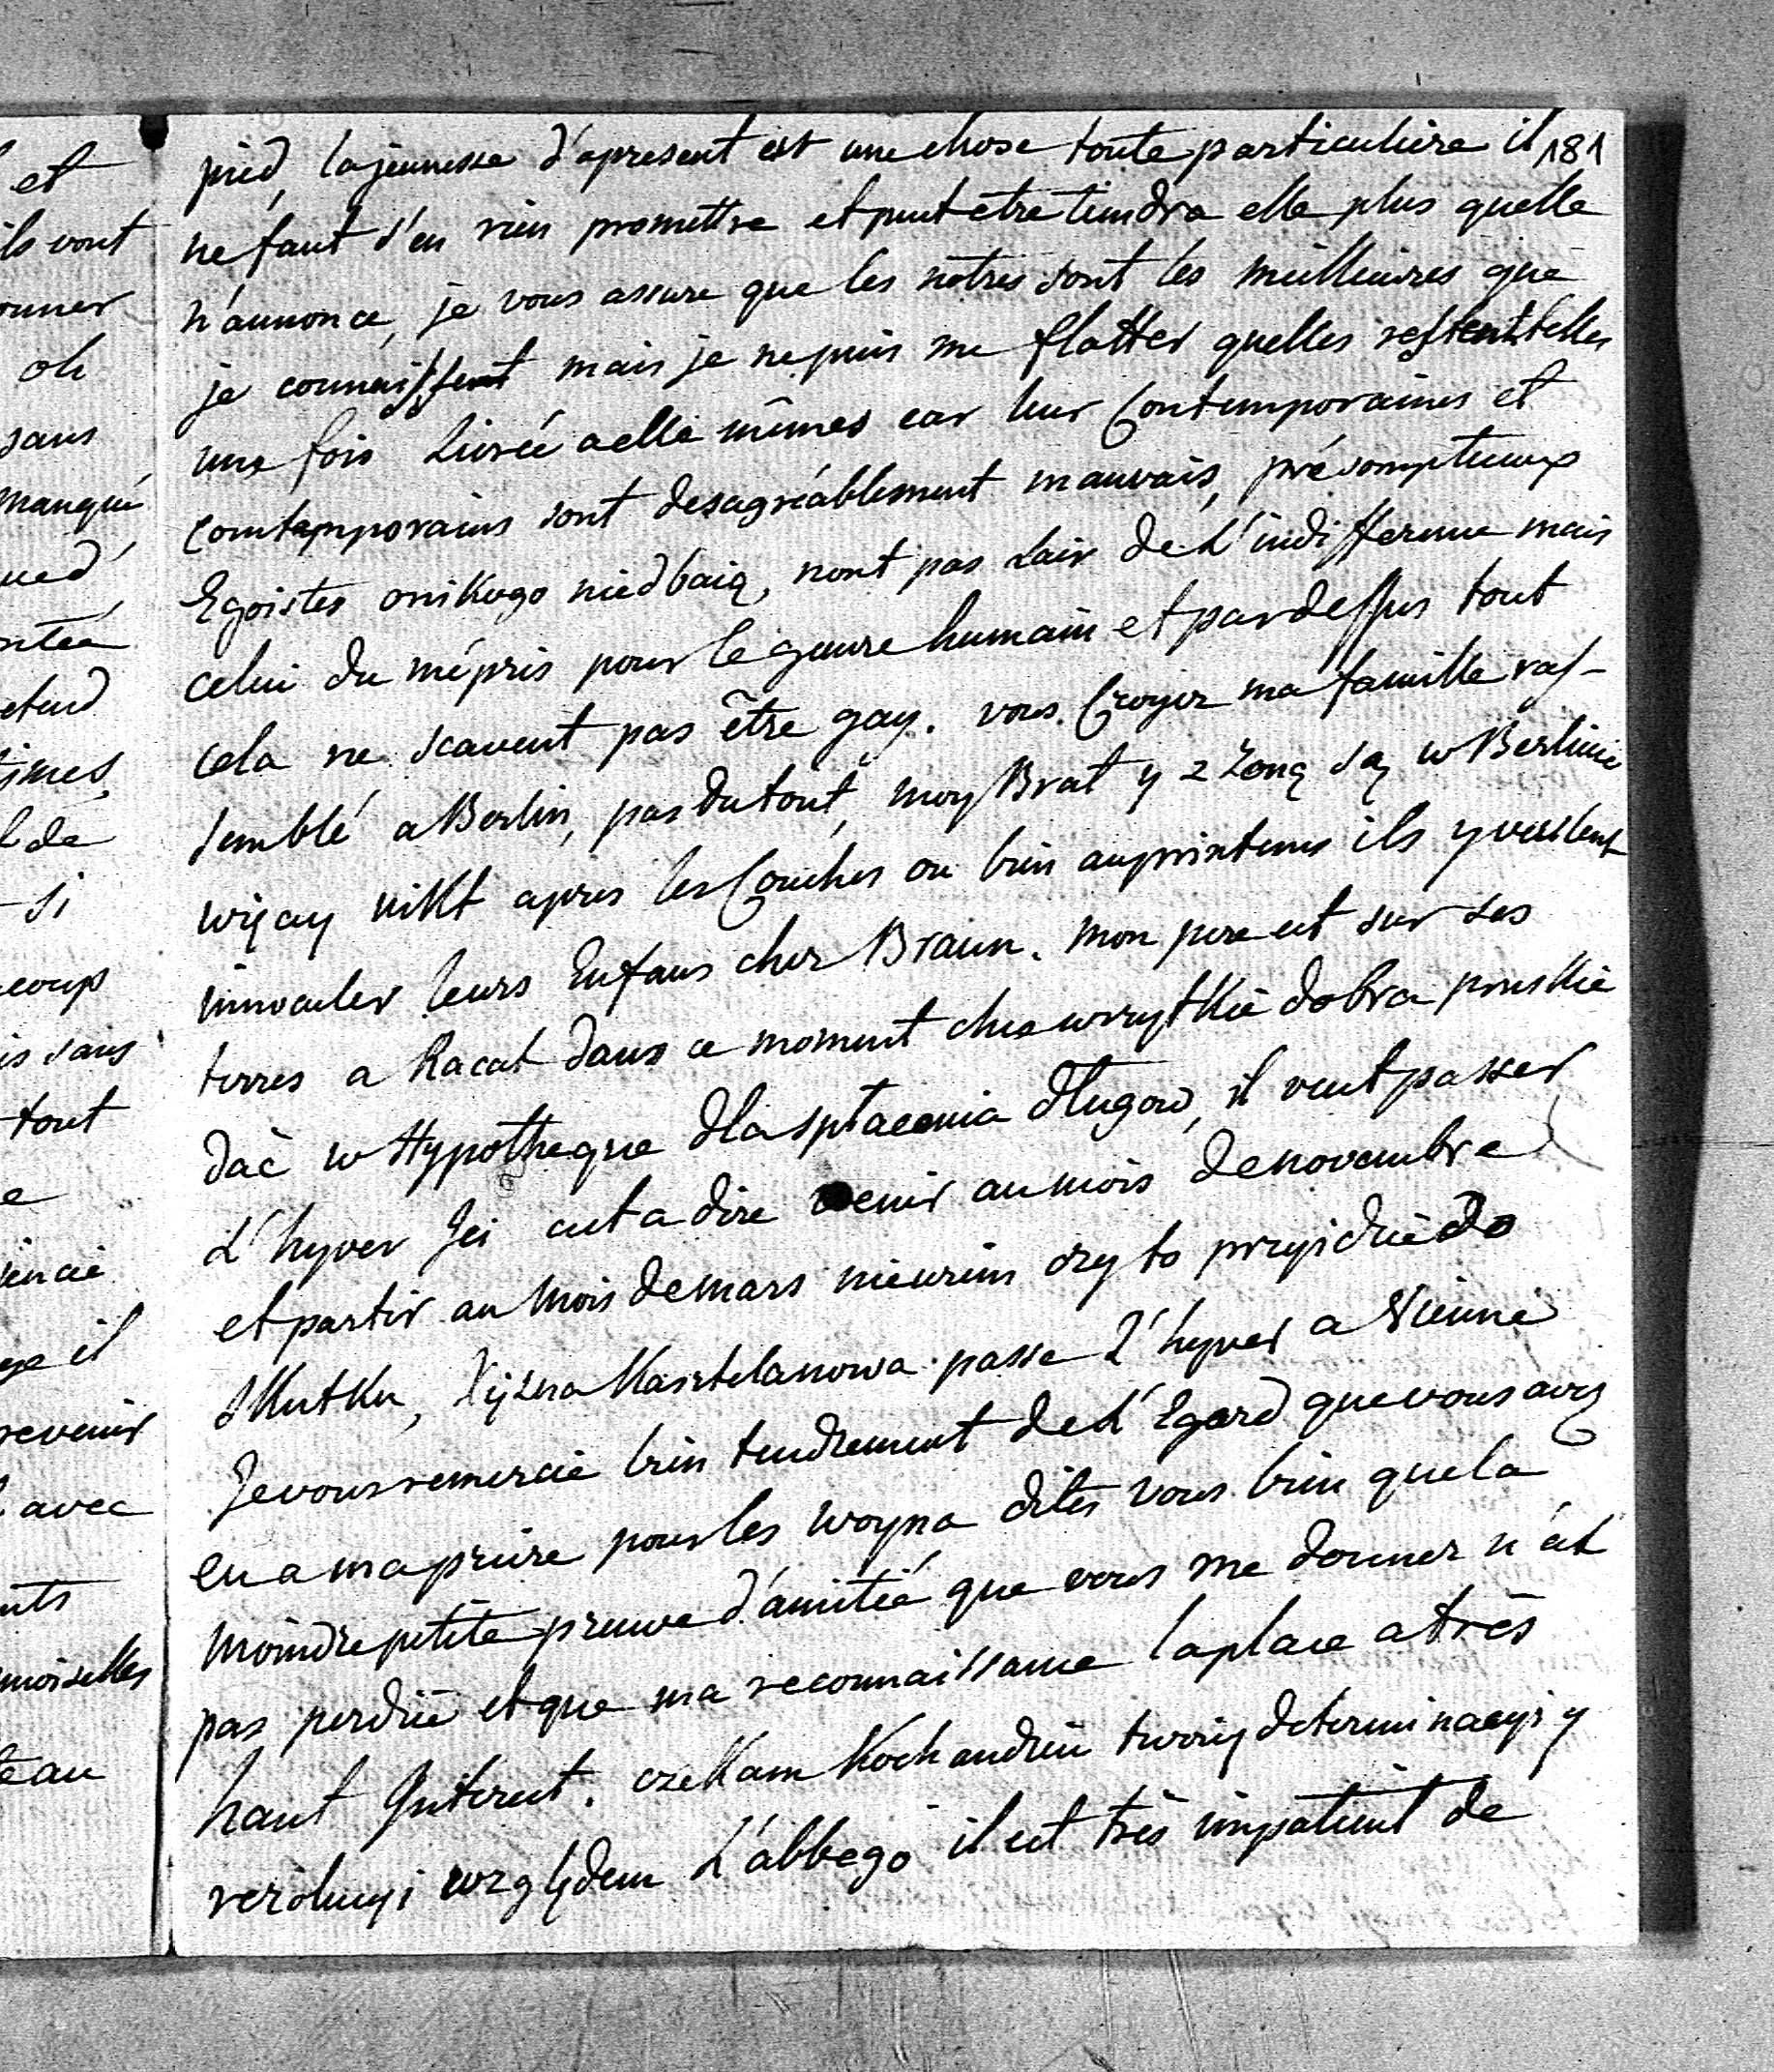 181
pied, la jeunesse d'apresent est une chose toute particuliere il
ne faut s'en rien promettre et peut etre tiendra elle plus quelle
n'annonce, je vous assure que les nôtres sont les meilleures que
je connaissent mais je ne puis me flatter quelles restent telles
une fois Livrée a elle mêmes car leur Contemporaines et
Contemporains sont desagréablement mauvais, présomptueux
Egoistes onikogo niedbaią, nont pas Lair de L'indifference mais
celui du mépris pour le genre humain et pardessus tout
cela ne scavent pas être gay. vous Croyez ma famille ras-
semblé a Berlin, pas du tout, moy Brat y z Zoną są w Berlinie
więcay nikt apres les Couches ou bien au printems ils y veulent
innoculer leurs Enfans chez Braun. Mon pere est sur ses
terres a Racat dans ce moment chce wszytkie dobra pruskie
dać w Hypotheque dla spłacenia długow, il veut passer
L'hyver Ici cest a dire venir au mois de novembre
et partir au Mois de mars niewiem czy to przyidzie do
skutku, Xiężna Kasztelanowa passe L'hyver a Vienne
Je vous remercie bien tendrement de L'Egard que vous avez
eu a ma priere pour les woyna dites vous bien que la
moindre petite preuve d'amitié que vous me donnez n'est
pas perdue et que ma reconnaissance la place a très
haut Interest. czekam Kochandziu twoiey determinacyi y
rezolucyi względem L'abbego il est très impatient de
et
ils vont
onner
oh
sans
manqué
ued
ntée
etend
times
l de
- si
coup
is sans
tout
e
ge il
revenir
avec
nts
moiselles
eau